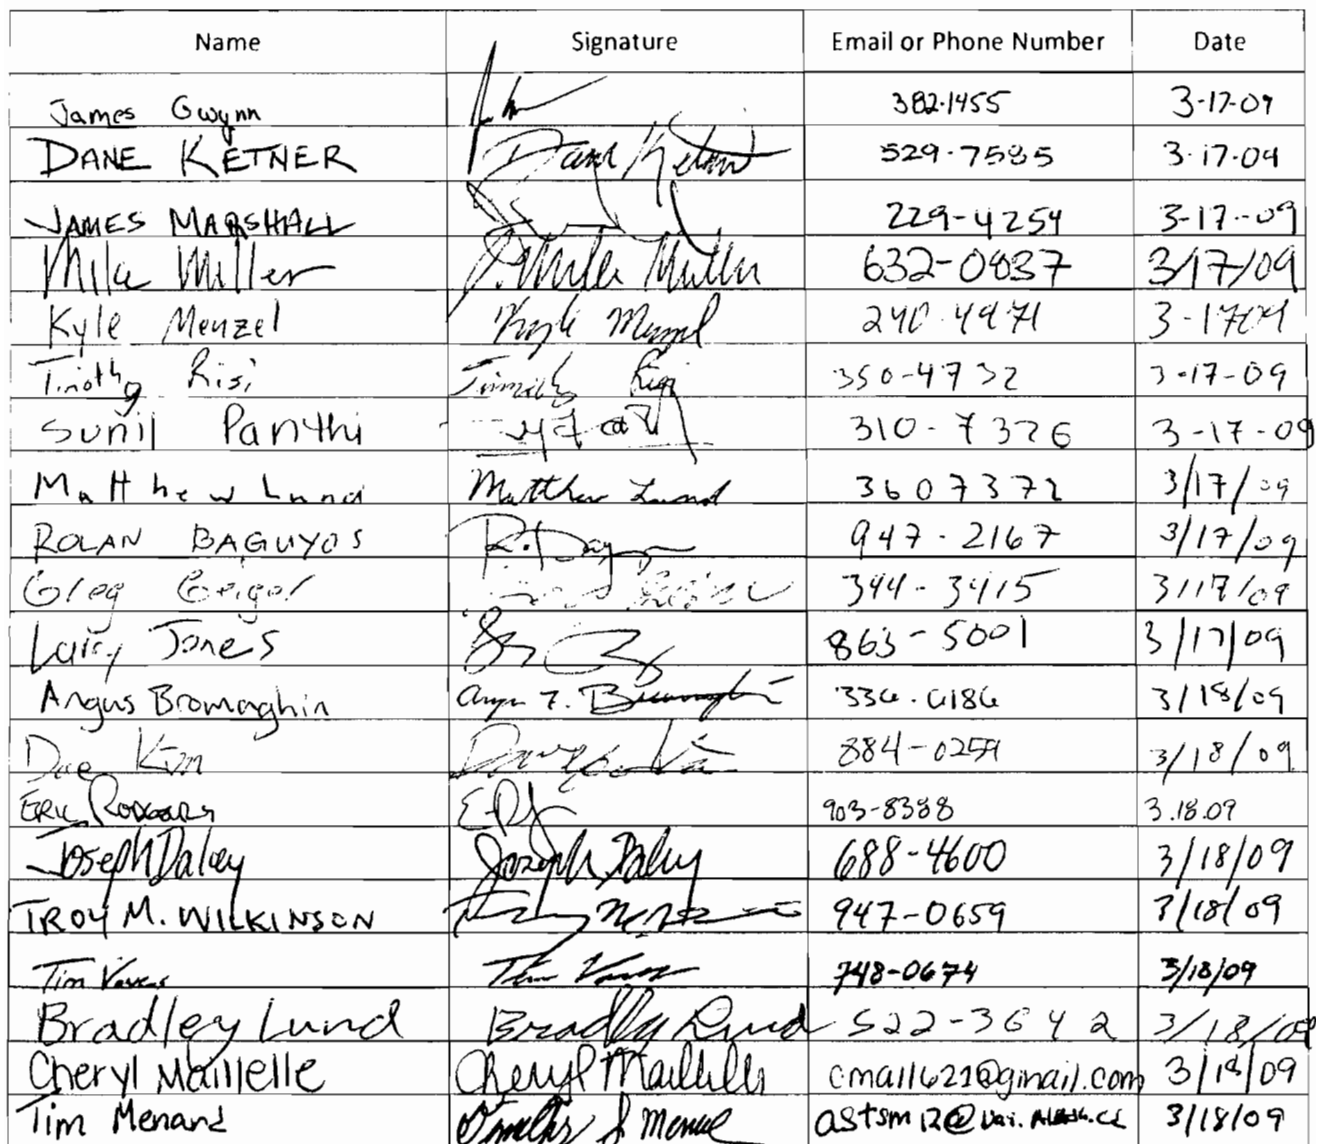 Name Signature Email or Phone Number Date
James Gwynn 382-1455 3-17-09
DANE KETNER Dane Ketner 529-7585 3-17-09
JAMES MARSHALL 229-4254 3-17-09
Mike Miller J. Mike Miller 632-0837 3/17/09
Kyle Menzel Kyle Menzel 240-4971 3-17-09
Timothy Risi Timothy Risi 350-4732 3-17-09
Sunil Panthi 310-7326 3-17-09
Matthew Lund Matthew Lund 3607372 3/17/09
ROLAN BAGUYOS 947-2167 3/17/09
Greg Geiger 344-3415 3/17/09
Larry Jones 863-5001 3/17/09
Angus Bromaghin Angus F. Bromaghin 336-6186 3/18/09
Dae Kim 884-0259 3/18/09
ERIC RODGERS 903-8388 3.18.09
Joseph Daley Joseph Daley 688-4600 3/18/09
TROY M. WILKINSON 947-0659 3/18/09
Tim 748-0674 3/18/09
Bradley Lund Bradley Lund 522-3642 3/18/09
Cheryl Maillelle Cheryl Maillelle cmail621@gmail.com 3/18/09
Tim Menard 3/18/09